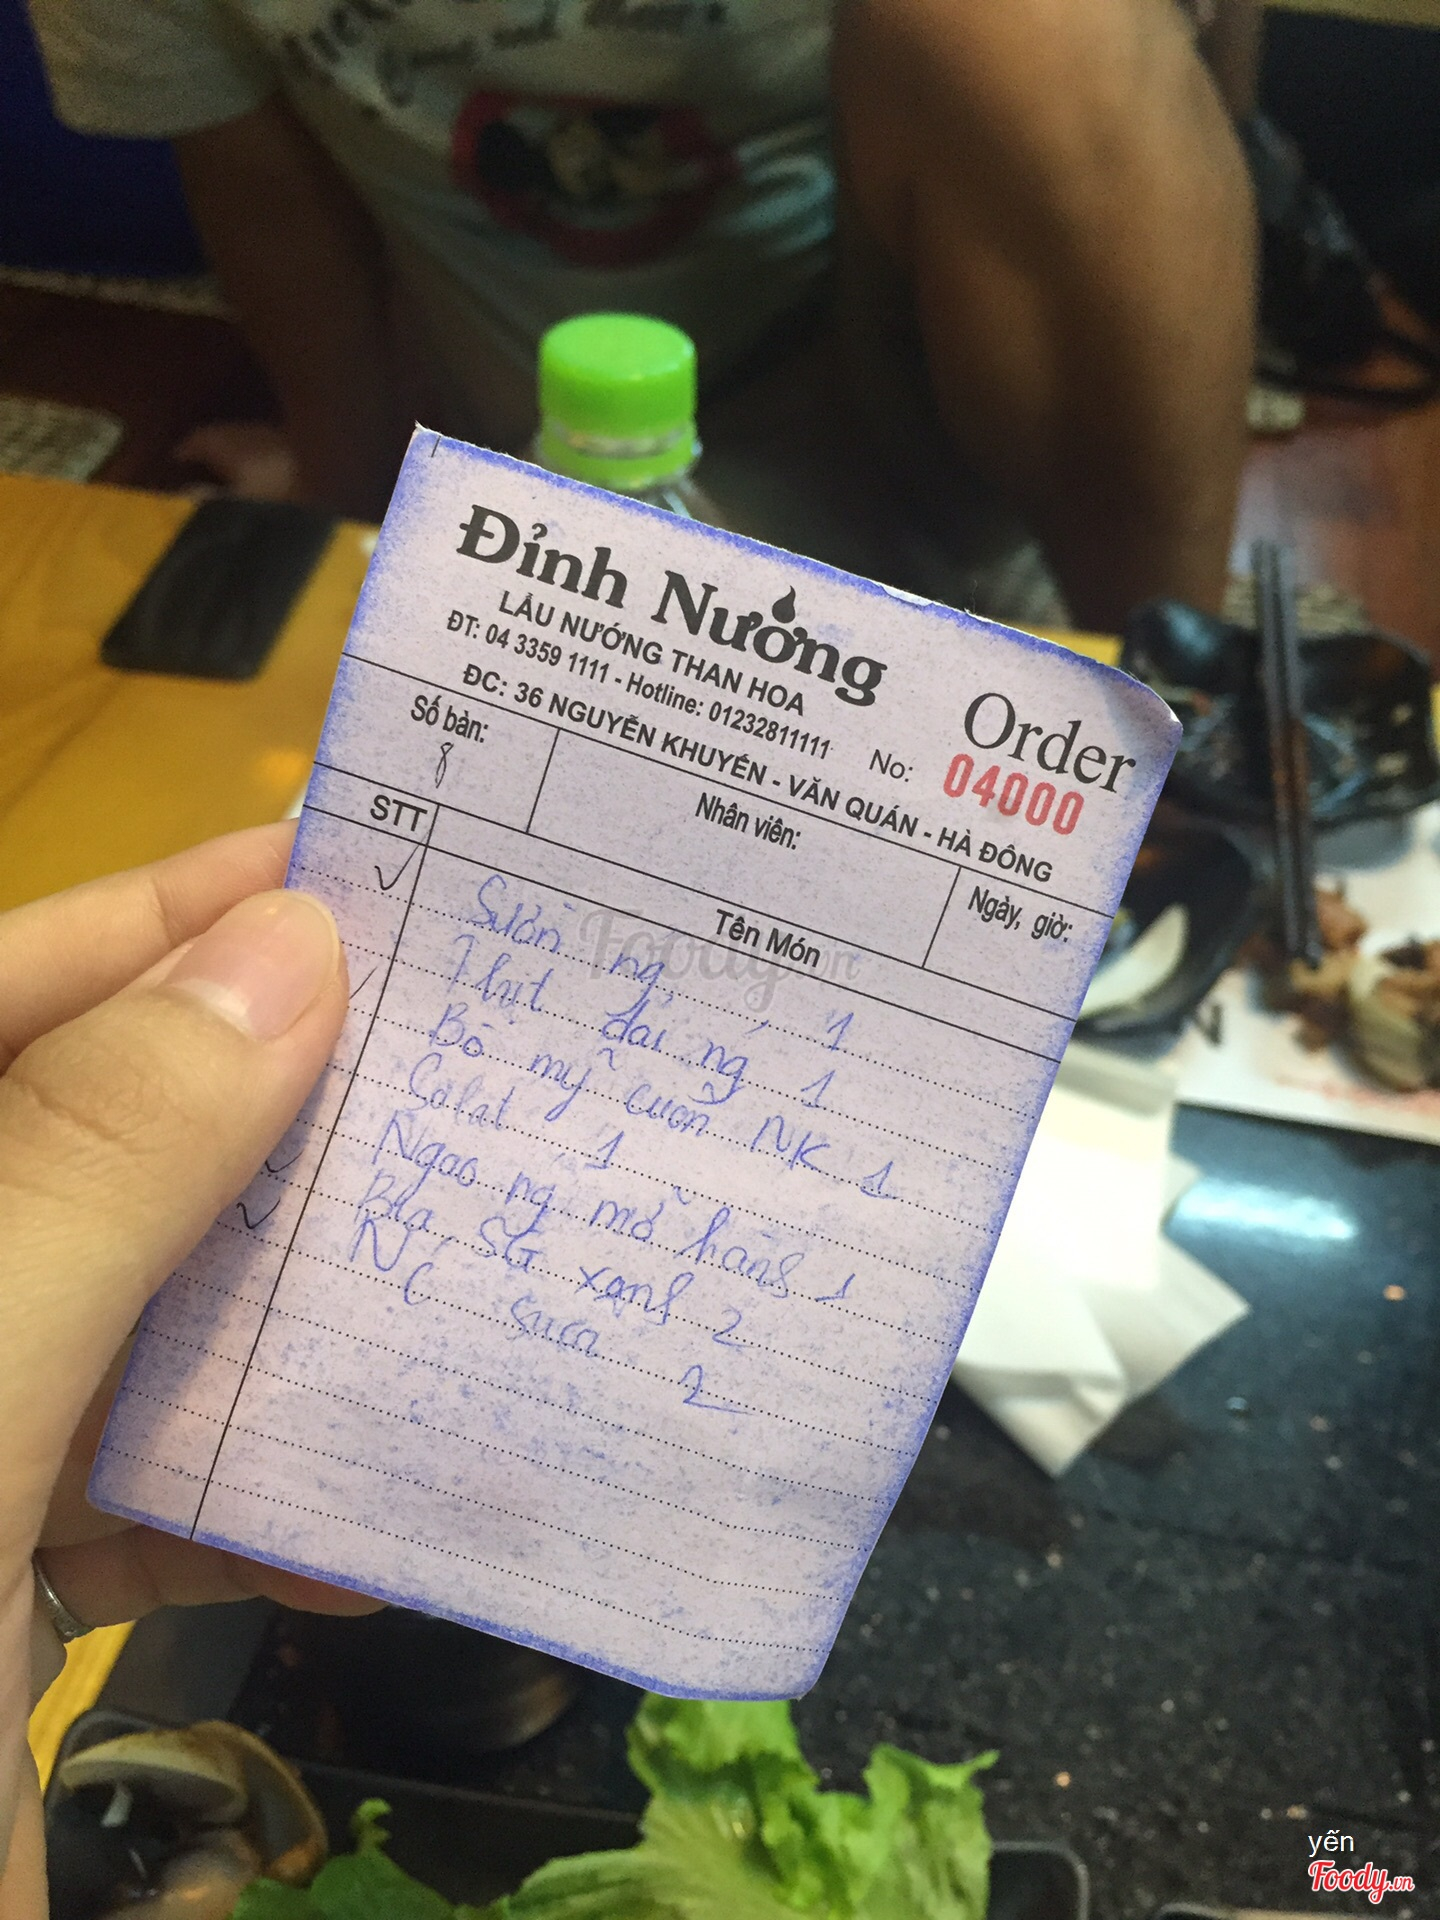 Đỉnh Nướng
LẨU NƯỚNG THAN HOA
ĐT: 04 3359 1111 - Hotline: 01232811111
ĐC: 36 NGUYỄN KHUYẾN - VĂN QUÁN - HÀ ĐÔNG
Order
No: 04000
Số bàn: 8
Nhân viên:
Ngày, giờ:
STT
Tên Món
Sườn ng 1
dải ng 1
Bò mỹ cuốn NK 1
Salat 1
Ngao ng mỡ hành 1
Bia SG xanh 2
N suối 2
Foody.vn
yến
Foody.vn